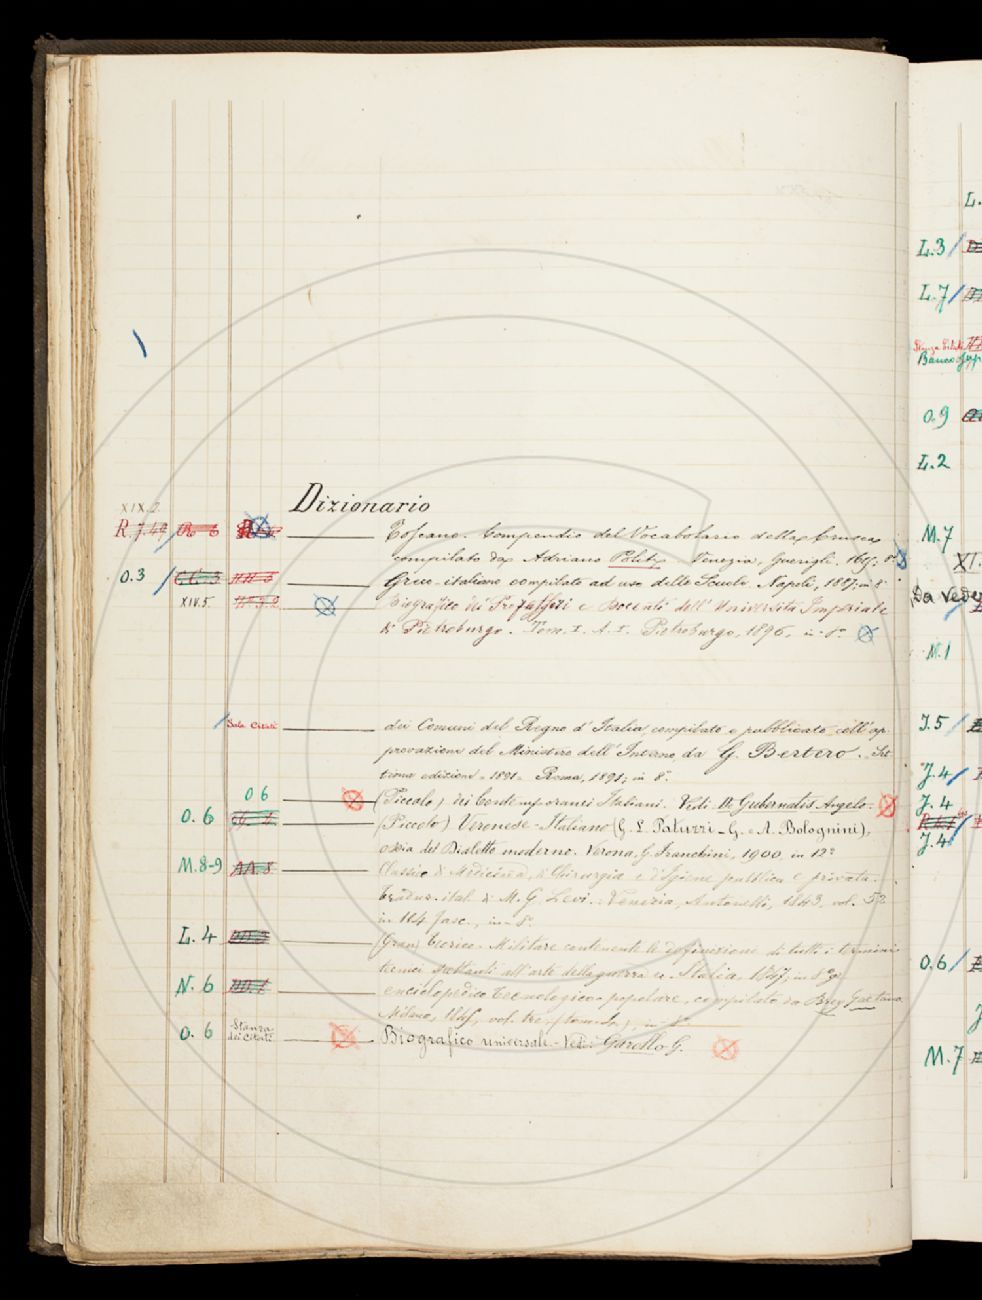 Dizionario
XIX.2.
R.7.49 Toscano. Compendio del Vocabolario della Crusca
compilato da Adriano Politi. Venezia, Guerigli. 8°
O.3 Greco-italiano compilato ad uso delle Scuole. Napoli, in 8°
XIV.5. Biografico dei Professori e Docenti dell' Università Imperiale
di Pietroburgo. Tom. I. A. I. Pietroburgo, 1896, in-8°
Sala Citati dei Comuni del Regno d'Italia compilato e pubblicato coll'ap-
provazione del Ministero dell'Interno da G. Bertero. Set-
tima edizione. 1891. Roma, 1891; in 8°.
O 6 (Piccolo) dei Contemporanei Italiani. Vedi: De Gubernatis Angelo.
O. 6 (Piccolo) Veronese-Italiano (G. L. Patuzzi - G. e A. Bolognini),
ossia del Dialetto moderno. Verona, G. Franchini, 1900. in 12°
M.8-9 Classico di Medicina, di Chirurgia e d'Igiene pubblica e privata.
Traduz. ital. di M. G. Levi. Venezia, Antonelli, 1843, vol. 52
in 124 fasc., in-8°
L. 4 (Gran) Teorico-Militare contenente le definizioni di tutti i termini
tecnici spettanti all'arte della guerra ec. Italia, 1847, in 8° gr.
N. 6 enciclopedico tecnologico-popolare, compilato da Brey Gaetano
Milano, vol. tre in-8°
O. 6 Stanza
dei Citati Biografico universale. Vedi Garollo G.
L.
L.3
L.7
Banco
O.9
L.2
M.7
XI.
Da veder
N.1
J.5
J.4
J.4
J.4
O.6
M.7